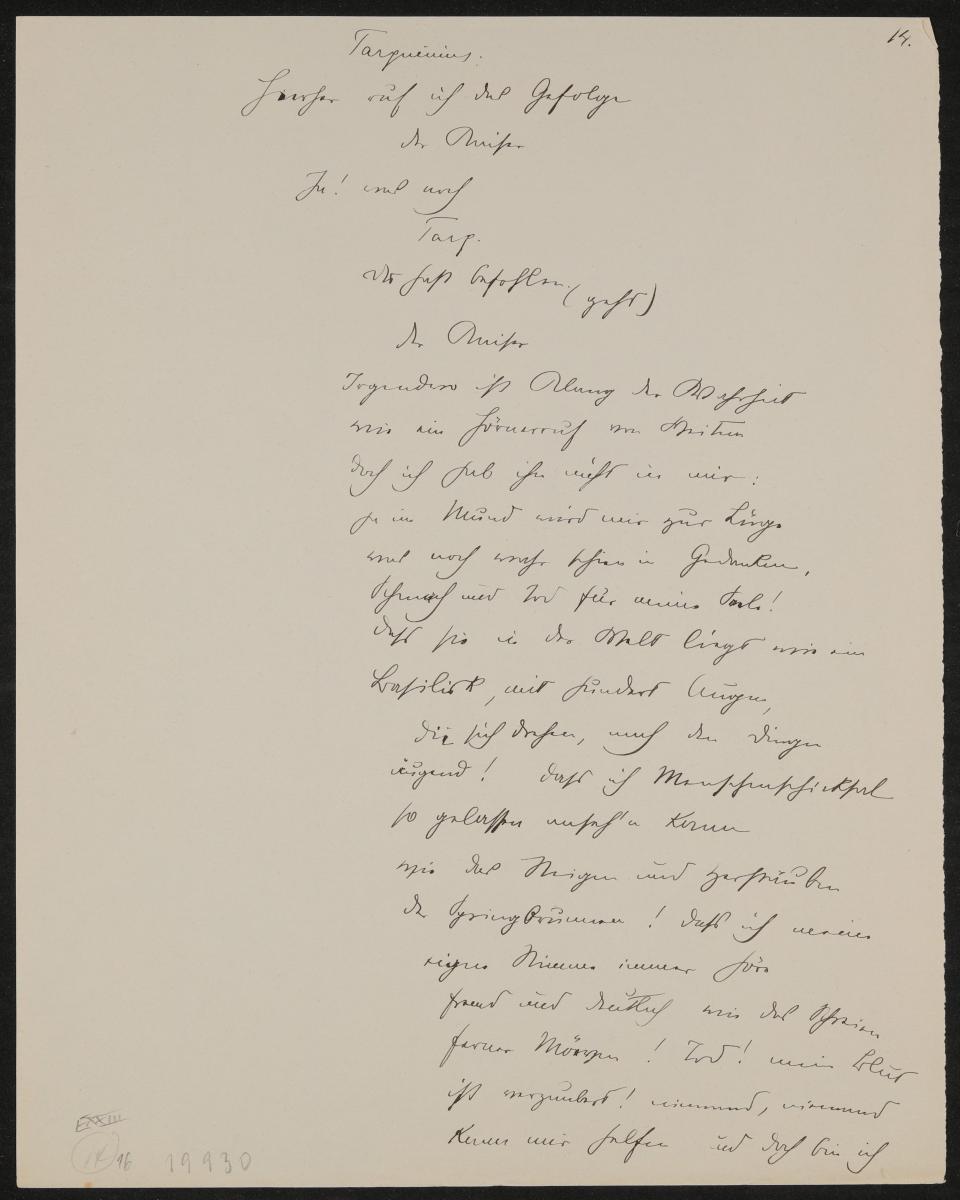 14.
Tarquinius.
Hierher ruf ich das Gefolge
der Kaiser
Ja! und noch
Tarq.
Du hast befohlen. (geht)
der Kaiser
Irgendwo ist Klang der Wahrheit
wie ein Hörnerruf von Weitem
doch ich hab ihn nicht in mir:
ja im Mund wird mir zur Lüge
was noch wahr schien in Gedanken,
Schmach und Tod für meine Seele!
dass sie in der Welt liegt wie ein
Basilisk, mit hundert Augen,
die sich drehen, nach den Dingen
äugend! dass ich Menschenschicksal
so gelassen anseh'n kann
wie das Steigen und Zerstäuben
der Springbrunnen! dass ich meine
eigne Stimme immer höre
fremd und deutlich wie das Schreien
ferner Möwen! Tod! mein Blut
ist verzaubert! niemand, niemand
kann mir helfen und doch bin ich
EXXIII
16 19930